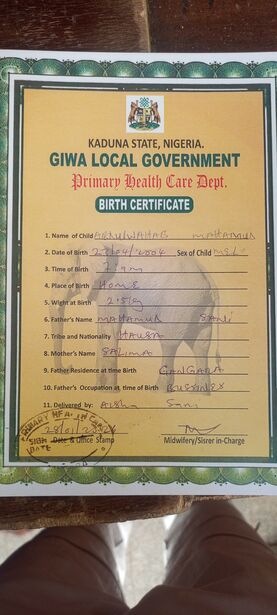 KADUNA STATE, NIGERIA.
GIWA LOCAL GOVERNMENT
Primary Health Care Dept.
BIRTH CERTIFICATE
1. Name of Child ABDULWAHAB MAHAMUD
2. Date of Birth 27/04/2004 Sex of Child
3. Time of Birth
4. Place of Birth HOME
5. Wight at Birth
6. Father's Name MAHAMUD SANI
7. Tribe and Nationality HAUSA
8. Mother's Name SALIMA
9. Father Residence at time of Birth GANGARA
10. Father's Occupation at time of Birth BUSSINES
11. Delivered by: AISHA Sani
PRIMARY HEALTH CARE
28/01/
SIGN Date & Office Stamp Midwifery/Sisrer in-Charge
DATE